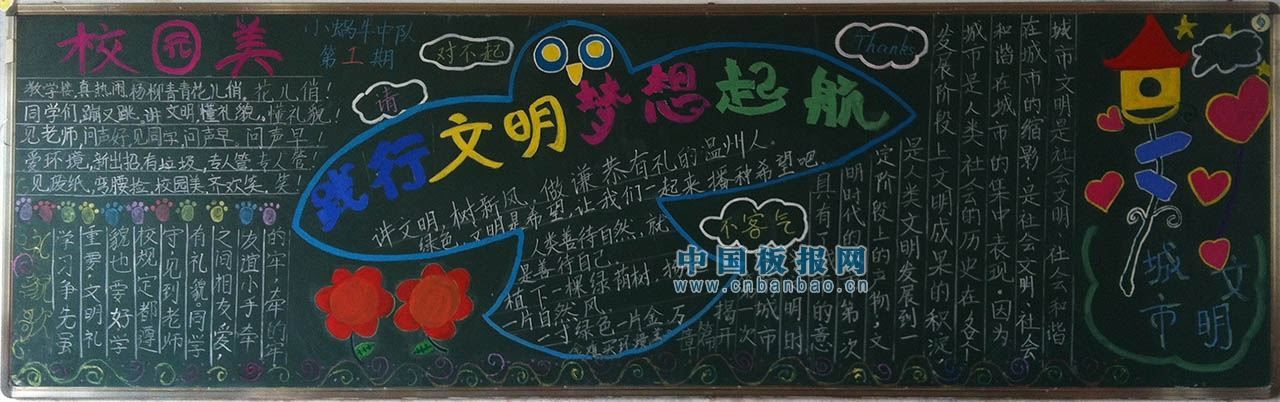 校园美
小蜗牛中队
第1期
教学楼,真热闹,杨柳青青花儿俏,花儿俏!
同学们,蹦又跳,讲文明,懂礼貌,懂礼貌!
见老师,问声好,见同学,问声早,问声早!
爱环境,新出招,有垃圾,专人管,专人管!
见废纸,弯腰捡,校园美,齐欢笑,笑!
的牢,牵的牢
友谊小手牵
之间相友爱,
有礼貌。同学
守,见到老师
校规定都遵
貌也要好学
重要,文明礼
学习争先虽
对不起
请
Thanks
不客气
践行文明 梦想起航
讲文明,树新风,做谦恭有礼的温州人。
绿色,文明是希望,让我们一起来播种希望吧,
人类善待自然,就
是善待自己,
植下一棵绿荫树,
一片自然风,
一寸绿色一片金,万
城市文明是社会文明,社会和谐
在城市的缩影,是社会文明,社会
和谐在城市的集中表现。因为
城市是人类社会的历史在各个
发展阶段上文明成果的积淀,
是人类文明发展到一
定阶段上的产物,文
明时代的第一次
具有
明的意
城市
明时
揭开
一次
章篇
文明
城市
中国板报网
www.cnbanbao.cn